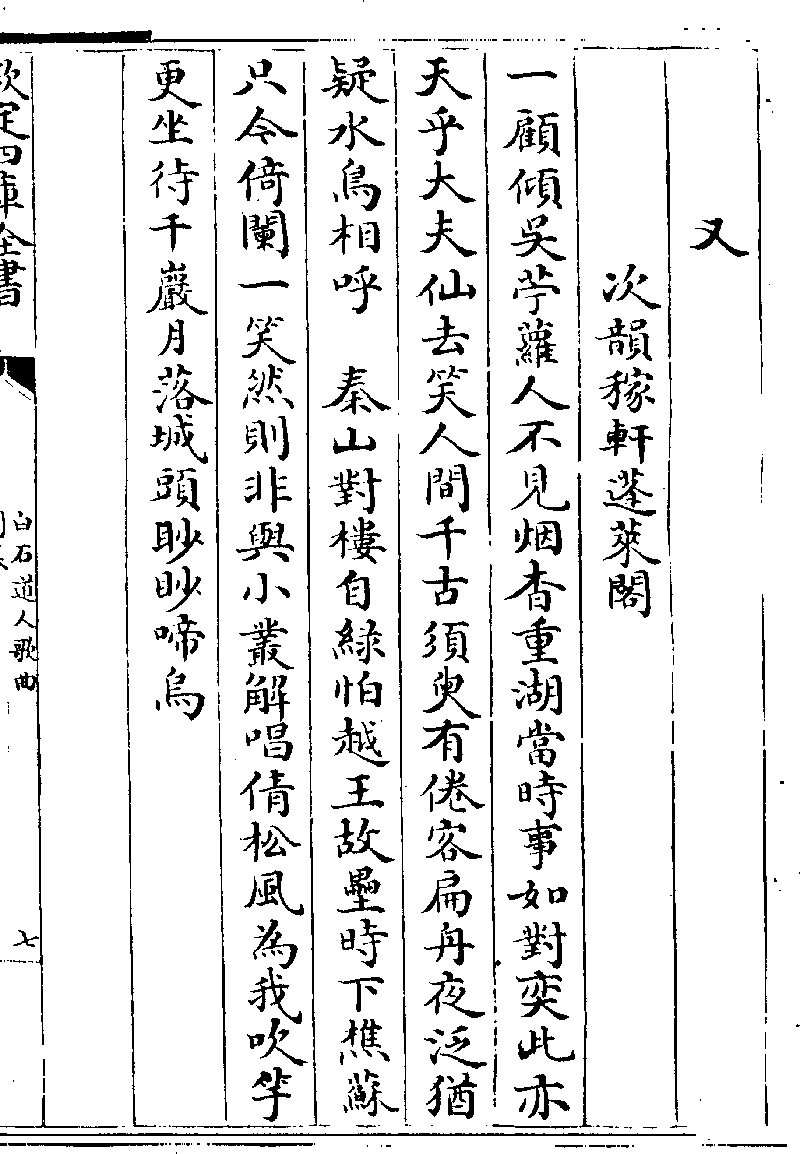 又
次韻稼軒蓬萊閣
一顧傾吳苧蘿人不見烟杳重湖當時事如對奕此亦
天乎大夫仙去笑人間千古須臾有倦客扁舟夜泛猶
疑水鳥相呼　秦山對樓自綠怕越王故壘時下樵蘇
只今倚闌一笑然則非與小叢解唱倩松風為我吹竽
更坐待千巖月落城頭眇眇啼烏
欽定四庫全書
白石道人歌曲
七